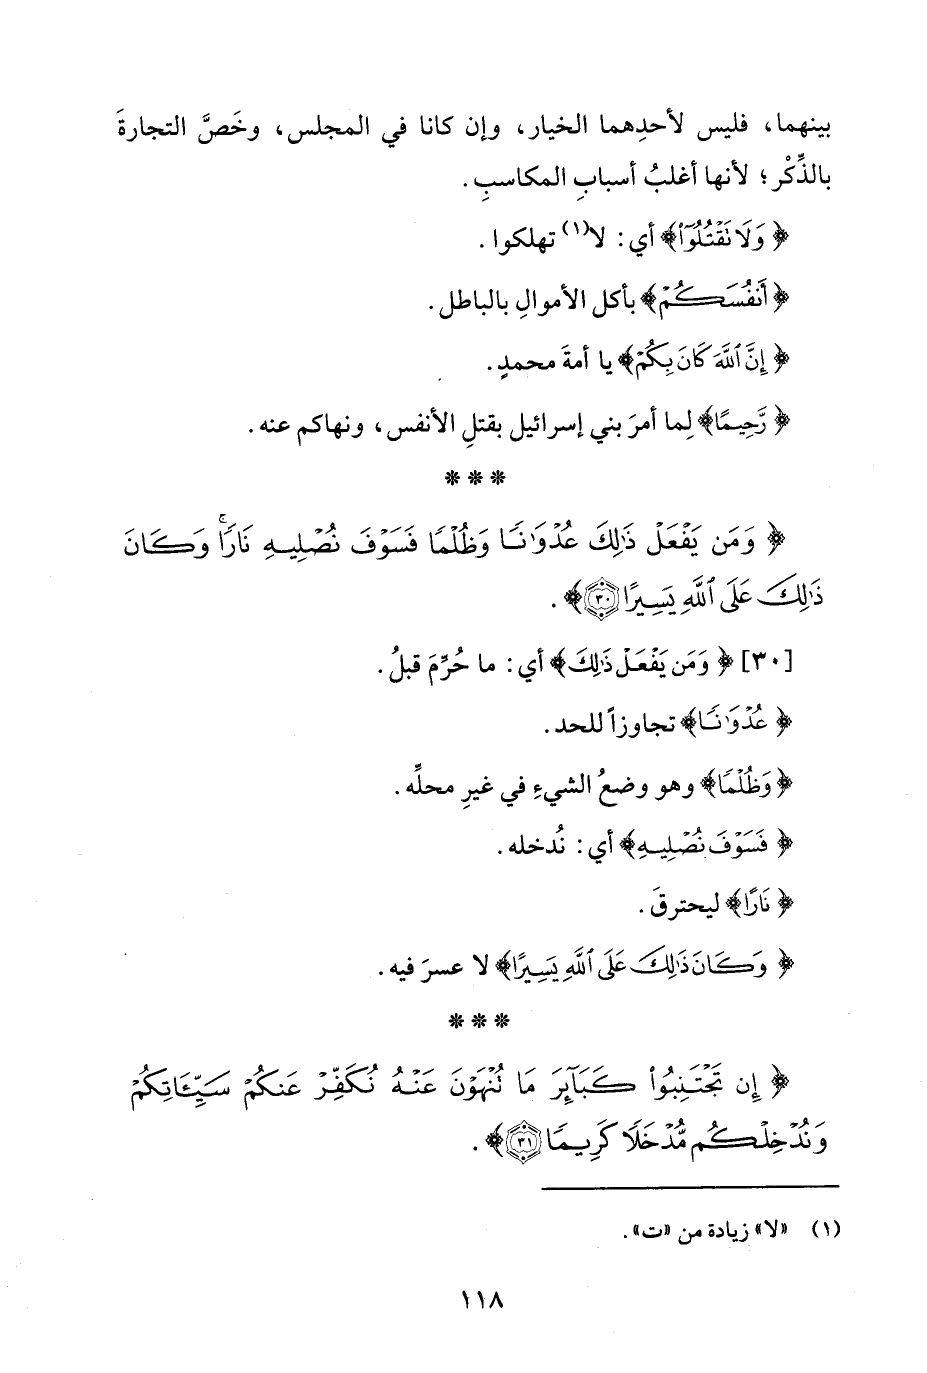 بينهما، فليس لأحدِهما الخيار، وإن كانا في المجلس، وخَصَّ التجارةَ
بالذِّكْر؛ لأنها أغلبُ أسبابِ المكاسبِ.
﴿وَلَا تَقْتُلُوٓا۟﴾ أي: لا(١) تهلكوا.
﴿أَنفُسَكُمْ﴾ بأكل الأموالِ بالباطل.
﴿إِنَّ ٱللَّهَ كَانَ بِكُمْ﴾ يا أمةَ محمدٍ.
﴿رَحِيمًا﴾ لِما أمرَ بني إسرائيل بقتلِ الأنفس، ونهاكم عنه.
* * *
﴿وَمَن يَفْعَلْ ذَٰلِكَ عُدْوَٰنًا وَظُلْمًا فَسَوْفَ نُصْلِيهِ نَارًا ۚ وَكَانَ
ذَٰلِكَ عَلَى ٱللَّهِ يَسِيرًا ٣٠﴾.
[٣٠] ﴿وَمَن يَفْعَلْ ذَٰلِكَ﴾ أي: ما حُرِّمَ قبلُ.
﴿عُدْوَٰنًا﴾ تجاوزاً للحد.
﴿وَظُلْمًا﴾ وهو وضعُ الشيءِ في غيرِ محلِّه.
﴿فَسَوْفَ نُصْلِيهِ﴾ أي: نُدخله.
﴿نَارًا﴾ ليحترقَ.
﴿وَكَانَ ذَٰلِكَ عَلَى ٱللَّهِ يَسِيرًا﴾ لا عسرَ فيه.
* * *
﴿إِن تَجْتَنِبُوا۟ كَبَآئِرَ مَا تُنْهَوْنَ عَنْهُ نُكَفِّرْ عَنكُمْ سَيِّـَٔاتِكُمْ
وَنُدْخِلْكُم مُّدْخَلًا كَرِيمًا ٣١﴾.
(١) «لا» زيادة من «ت».
١١٨